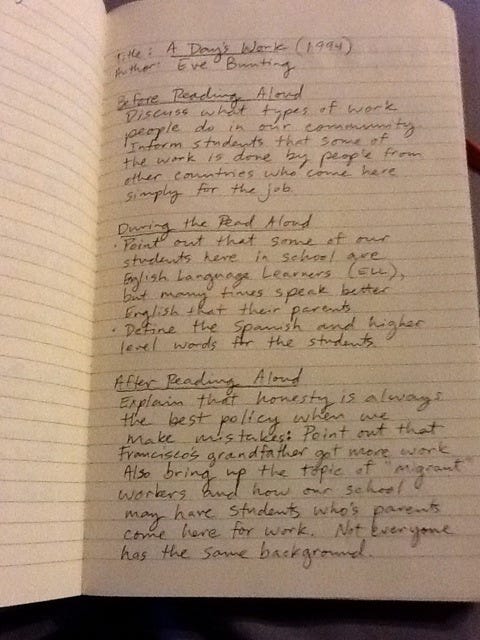 Title: A Day's Work (1994)
Author: Eve Bunting
Before Reading Aloud
Discuss what types of work
people do in our community.
Inform students that some of
the work is done by people from
other countries who come here
simply for the job.
During the Read Aloud
• Point out that some of our
students here in school are
English Language Learners (ELL),
but many times speak better
English that their parents.
• Define the Spanish and higher
level words for the students.
After Reading Aloud
Explain that honesty is always
the best policy when we
make mistakes: Point out that
Francisco's grandfather got more work
Also bring up the topic of "migrant"
workers and how our school
may have students who's parents
come here for work. Not everyone
has the same background.